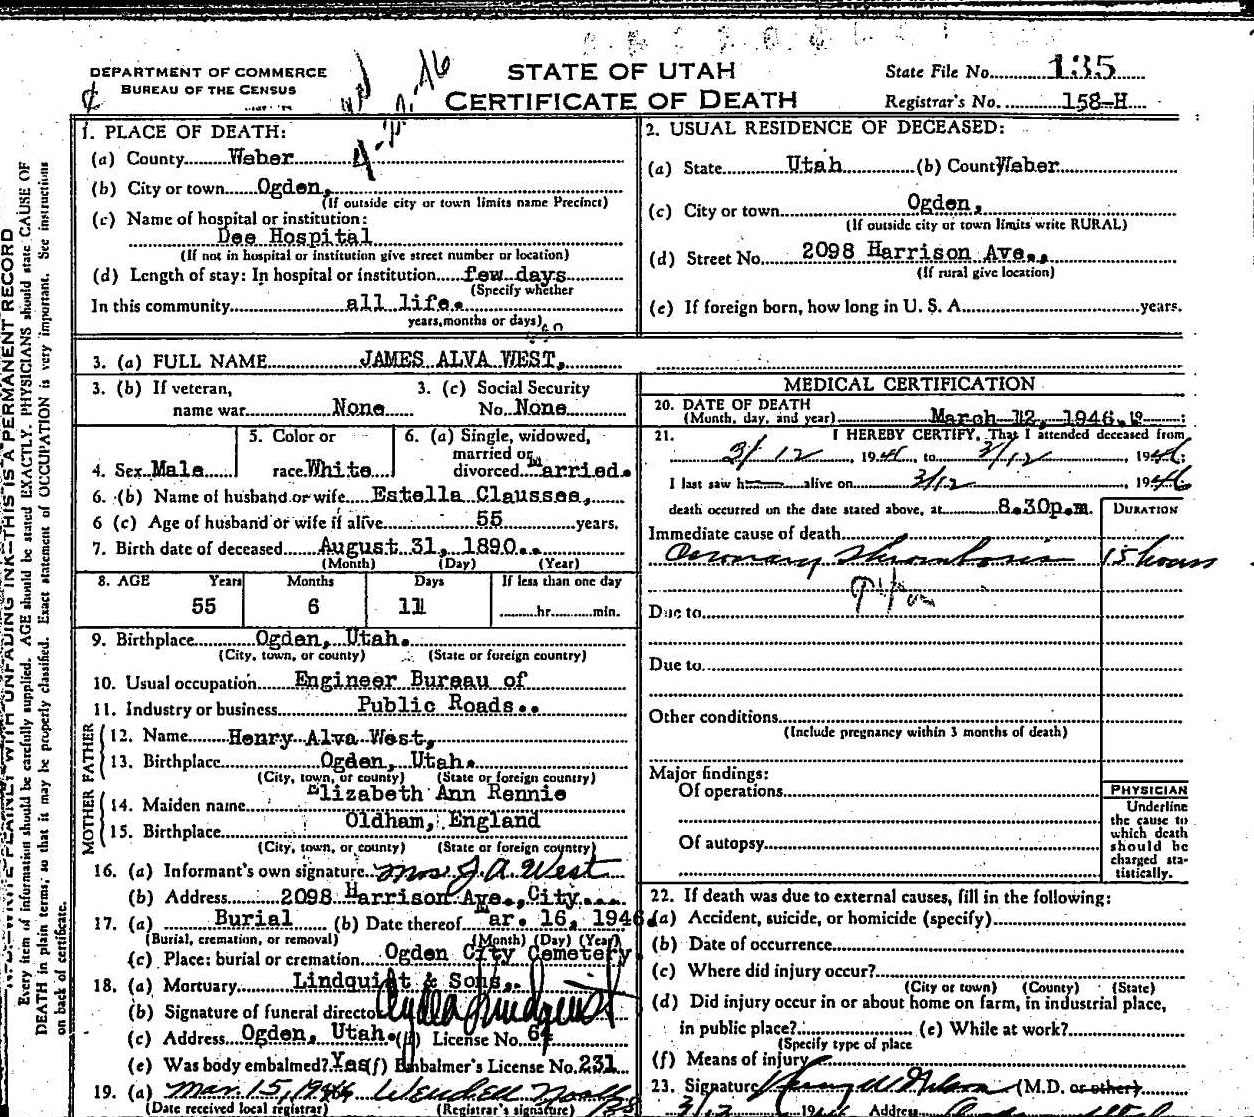 DEPARTMENT OF COMMERCE
BUREAU OF THE CENSUS
STATE OF UTAH
CERTIFICATE OF DEATH
State File No. 135
Registrar's No. 158-H
1. PLACE OF DEATH:
(a) County Weber
(b) City or town Ogden,
(If outside city or town limits name Precinct)
(c) Name of hospital or institution:
Dee Hospital
(If not in hospital or institution give street number or location)
(d) Length of stay: In hospital or institution few days
(Specify whether
In this community all life.
years, months or days)
2. USUAL RESIDENCE OF DECEASED:
(a) State Utah (b) County Weber
(c) City or town Ogden,
(If outside city or town limits write RURAL)
(d) Street No. 2098 Harrison Ave.,
(If rural give location)
(e) If foreign born, how long in U. S. A. years.
3. (a) FULL NAME JAMES ALVA WEST,
3. (b) If veteran, name war None
3. (c) Social Security No. None
4. Sex Male
5. Color or race White
6. (a) Single, widowed, married or divorced Married.
6. (b) Name of husband or wife Estella Claussee,
6 (c) Age of husband or wife if alive 55 years.
7. Birth date of deceased August 31, 1890..
(Month) (Day) (Year)
8. AGE Years Months Days If less than one day
55 6 11 hr. min.
9. Birthplace Ogden, Utah.
(City, town, or county) (State or foreign country)
10. Usual occupation Engineer Bureau of
11. Industry or business Public Roads..
FATHER
12. Name Henry Alva West,
13. Birthplace Ogden, Utah.
(City, town, or county) (State or foreign country)
MOTHER
14. Maiden name Elizabeth Ann Rennie
15. Birthplace Oldham, England
(City, town, or county) (State or foreign country)
16. (a) Informant's own signature Mrs. J. A. West
(b) Address 2098 Harrison Ave., City.
17. (a) Burial (b) Date thereof Mar. 16, 1946.
(Burial, cremation, or removal) (Month) (Day) (Year)
(c) Place: burial or cremation Ogden City Cemetery
18. (a) Mortuary Lindquist & Sons,.
(b) Signature of funeral director Lindquist
(c) Address Ogden, Utah. License No. 64
(e) Was body embalmed? Yes (f) Embalmer's License No. 231
19. (a) Mar. 15, 1946 Wendell
(Date received local registrar) (Registrar's signature)
MEDICAL CERTIFICATION
20. DATE OF DEATH
(Month, day, and year) March 12, 1946.
21. I HEREBY CERTIFY, That I attended deceased from
3/12, 1946, to 3/12, 1946;
I last saw h alive on 3/12, 1946
death occurred on the date stated above, at 8.30p.m.
DURATION
Immediate cause of death
Coronary Thrombosis 15 hours
Due to
Due to
Other conditions
(Include pregnancy within 3 months of death)
Major findings:
Of operations
Of autopsy
PHYSICIAN
Underline
the cause to
which death
should be
charged sta-
tistically.
22. If death was due to external causes, fill in the following:
(a) Accident, suicide, or homicide (specify)
(b) Date of occurrence
(c) Where did injury occur?
(City or town) (County) (State)
(d) Did injury occur in or about home on farm, in industrial place,
in public place? (e) While at work?
(Specify type of place
(f) Means of injury
23. Signature (M.D. or other)
3/12 1946 Address
WRITE PLAINLY WITH UNFADING INK—THIS IS A PERMANENT RECORD
Every item of information should be carefully supplied. AGE should be stated EXACTLY. PHYSICIANS should state CAUSE OF
DEATH in plain terms, so that it may be properly classified. Exact statement of OCCUPATION is very important. See instructions
on back of certificate.